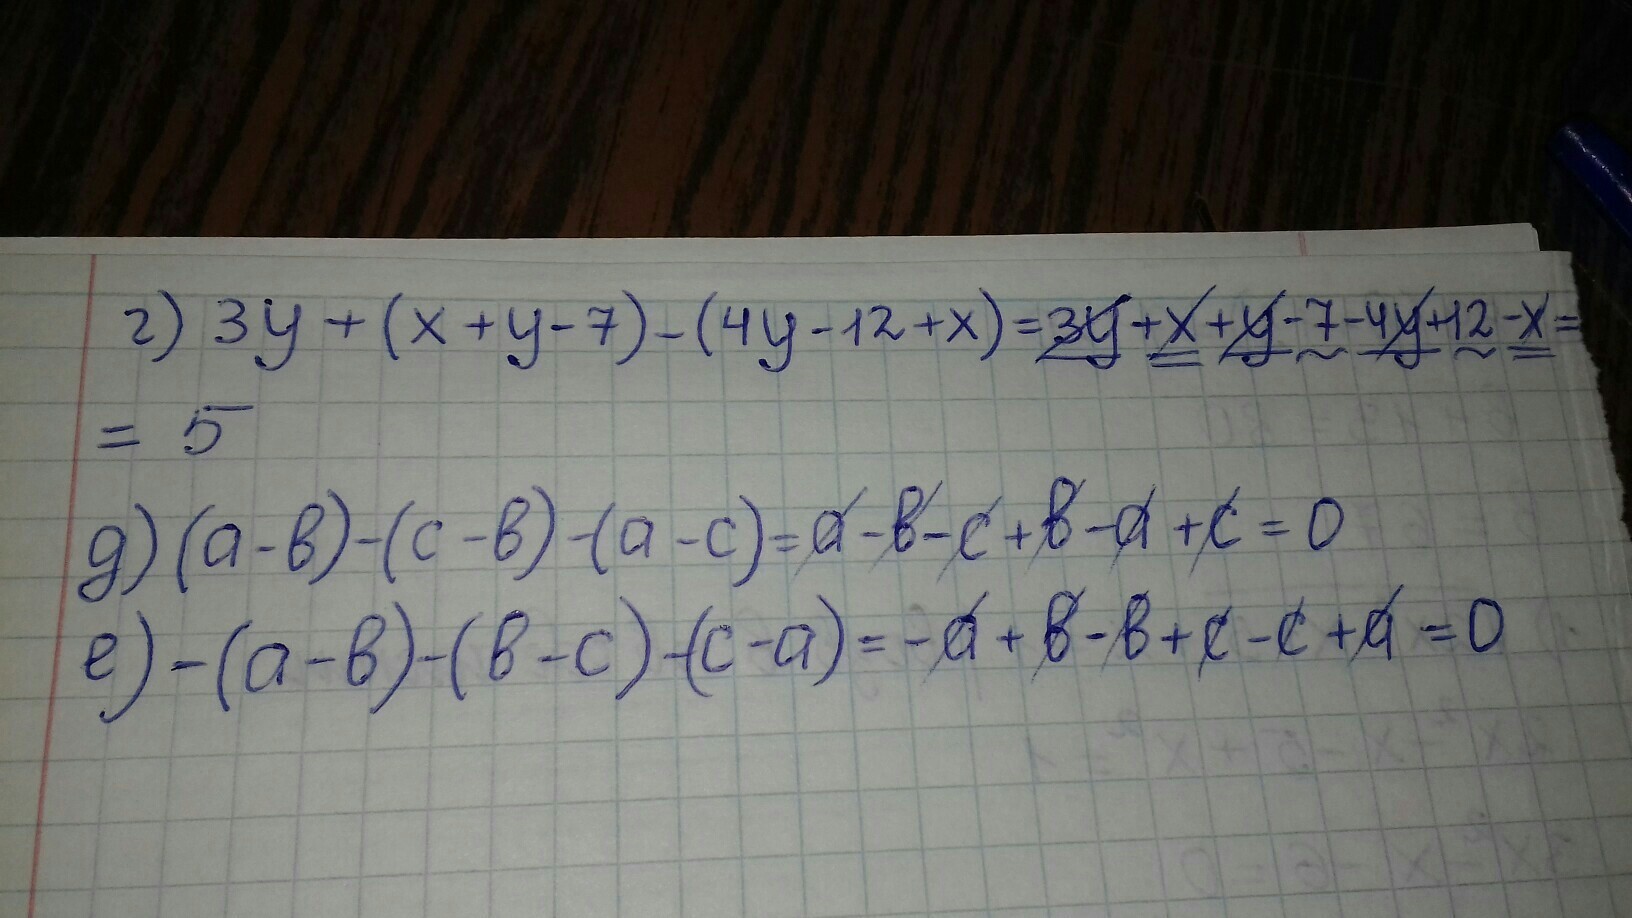 г) 3y + (x + y - 7) - (4y - 12 + x) = 3y + x + y - 7 - 4y + 12 - x =
= 5
д) (a - в) - (c - в) - (a - c) = a - в - c + в - a + c = 0
е) - (a - в) - (в - c) - (c - a) = - a + в - в + c - c + a = 0